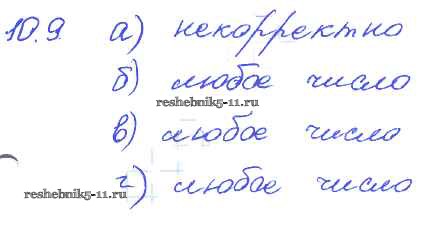 10.9. а) некорректно
б) любое число
reshebnik5-11.ru
в) любое число
г) любое число
reshebnik5-11.ru